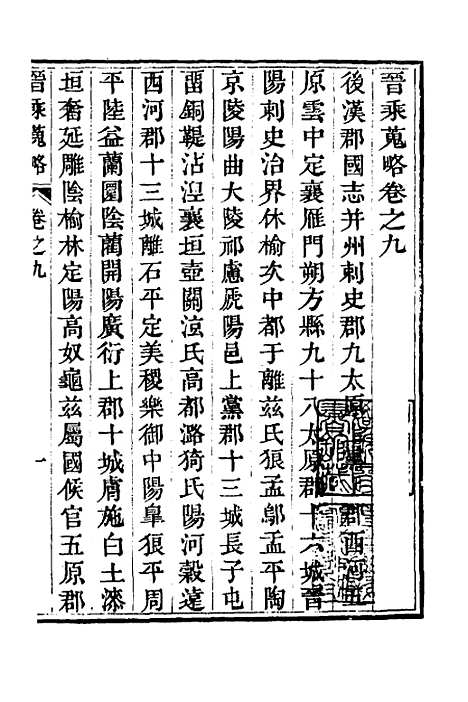 晉乘蒐略卷之九
後漢郡國志并州刺史郡九太原上黨郡西河五
原雲中定襄雁門朔方縣九十八太原郡十六城晉
陽刺史治界休榆次中都于離茲氏狼孟鄔盂平陶
京陵陽曲大陵祁慮虒陽邑上黨郡十三城長子屯
畱銅鞮沾涅襄垣壺關泫氏高都潞猗氏陽河穀遠
西河郡十三城離石平定美稷樂街中陽皐狼平周
平陸益蘭圜陰藺圁陽廣衍上郡十城膚施白土漆
垣奢延雕陰榆林定陽高奴龜茲屬國候官五原郡
晉乘蒐略
卷之九
一